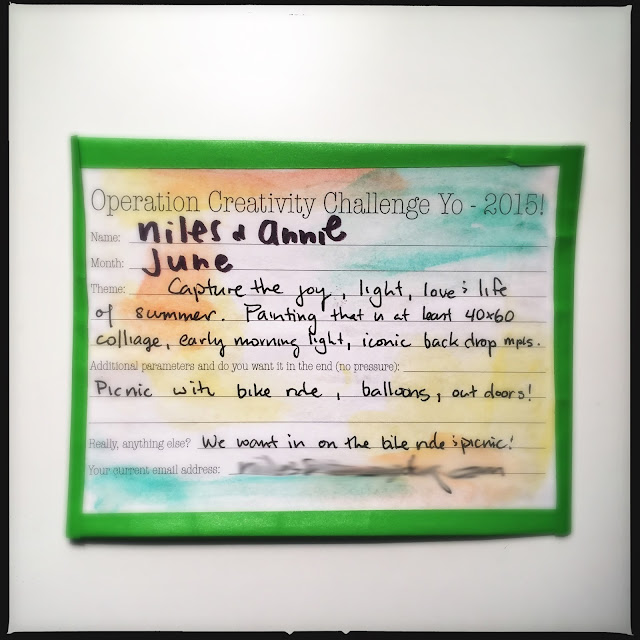 Operation Creativity Challenge Yo - 2015!
Name: niles & annie
Month: June
Theme: Capture the joy, light, love & life
of summer. Painting that is at least 40x60
colliage, early morning light, iconic back drop mpls.
Additional parameters and do you want it in the end (no pressure):
Picnic with bike ride, balloons, out doors!
Really, anything else? We want in on the bike ride & picnic!
Your current email address: